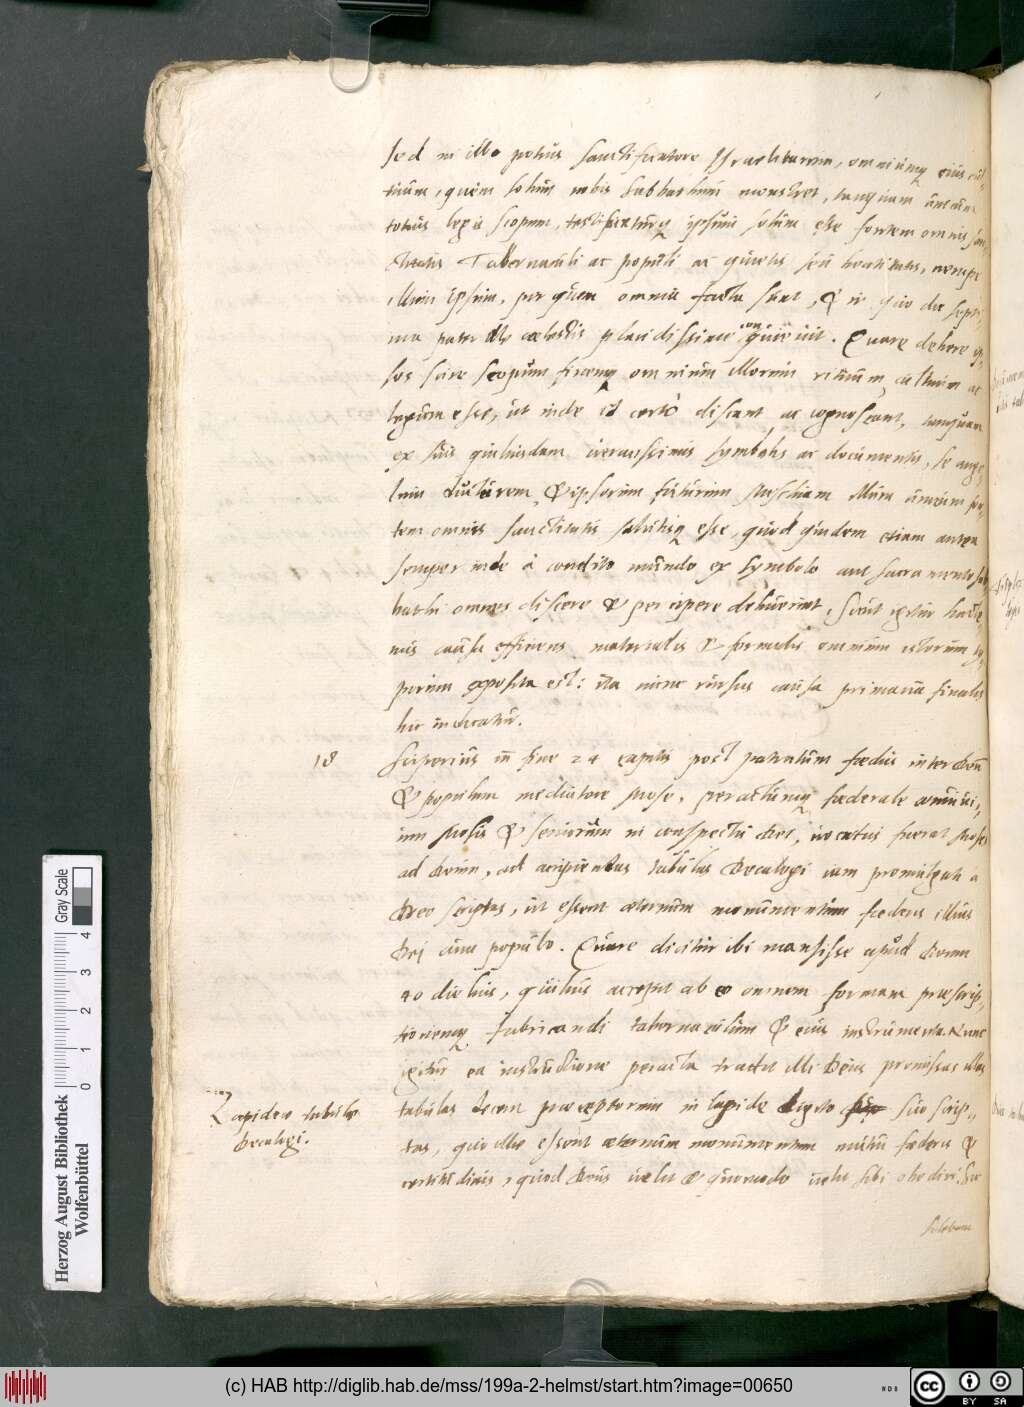 sed in illo potius sanctificatore Israelitarum, omniumq eius cul-
tuum, quem solum nobis sabbathum monstret, tanquam unicum
totius legis scopum, testificeturq ipsum solum esse fontem omnis san-
ctitatis Tabernaculi ac populi ac quietis seu beatitatis, nempe
illum ipsum, per quem omnia facta sunt, & in quo die septi-
ma pater ille coelestis placidissime conquievit. Quare debere ip-
sos scire scopum finemq omnium illorum rituum, cultuum ac
legum esse, ut inde id certo discant ac cognoscant, tanquam
ex suis quibusdam verissimis symbolis ac documentis, se ange-
lum ductorem, & ipsorum futurum Messiam illum unicum fon-
tem omnis sanctitatis salutisq esse, quod quidem etiam antea
semper inde à condito mundo ex symbolo aut sacramento sab-
bathi omnes discere & percipere debuerint. Sicut igitur hacte-
nus causa efficiens, materialis & formalis omnium istorum ty-
porum exposita est: ita nunc rursus causa primaria finalis
hic indicatur.
18 Superius in fine 24 capitis post patratum foedus inter Deum
& populum mediatore Mose, peractumq foederale convivi-
um Mosis & seniorum in conspectu Dei, vocatus fuerat Moses
ad Deum, ad accipiendas tabulas Decalogi iam promulgati a
Deo scriptas, ut essent aeternum monumentum foederis illius
Dei cum populo. Quare dicitur ibi mansisse apud Deum
40 diebus, quibus accepit ab eo omnem formam praescrip-
tionemq fabricandi tabernaculum & eius instrumenta. Nunc
igitur ea instructione peracta tradit illi Deus promissas illas
tabulas decem praeceptorum in lapide digito suo scrip-
tas, quo illae essent aeternum monumentum mutui foederis &
quod Deus velit & quomodo velit sibi obediri. Sic
Lapideae tabulae
Decalogi.
solebam
Herzog August Bibliothek
Wolfenbüttel
0 1 2 3 4
Gray Scale
(c) HAB http://diglib.hab.de/mss/199a-2-helmst/start.htm?image=00650
cc BY SA